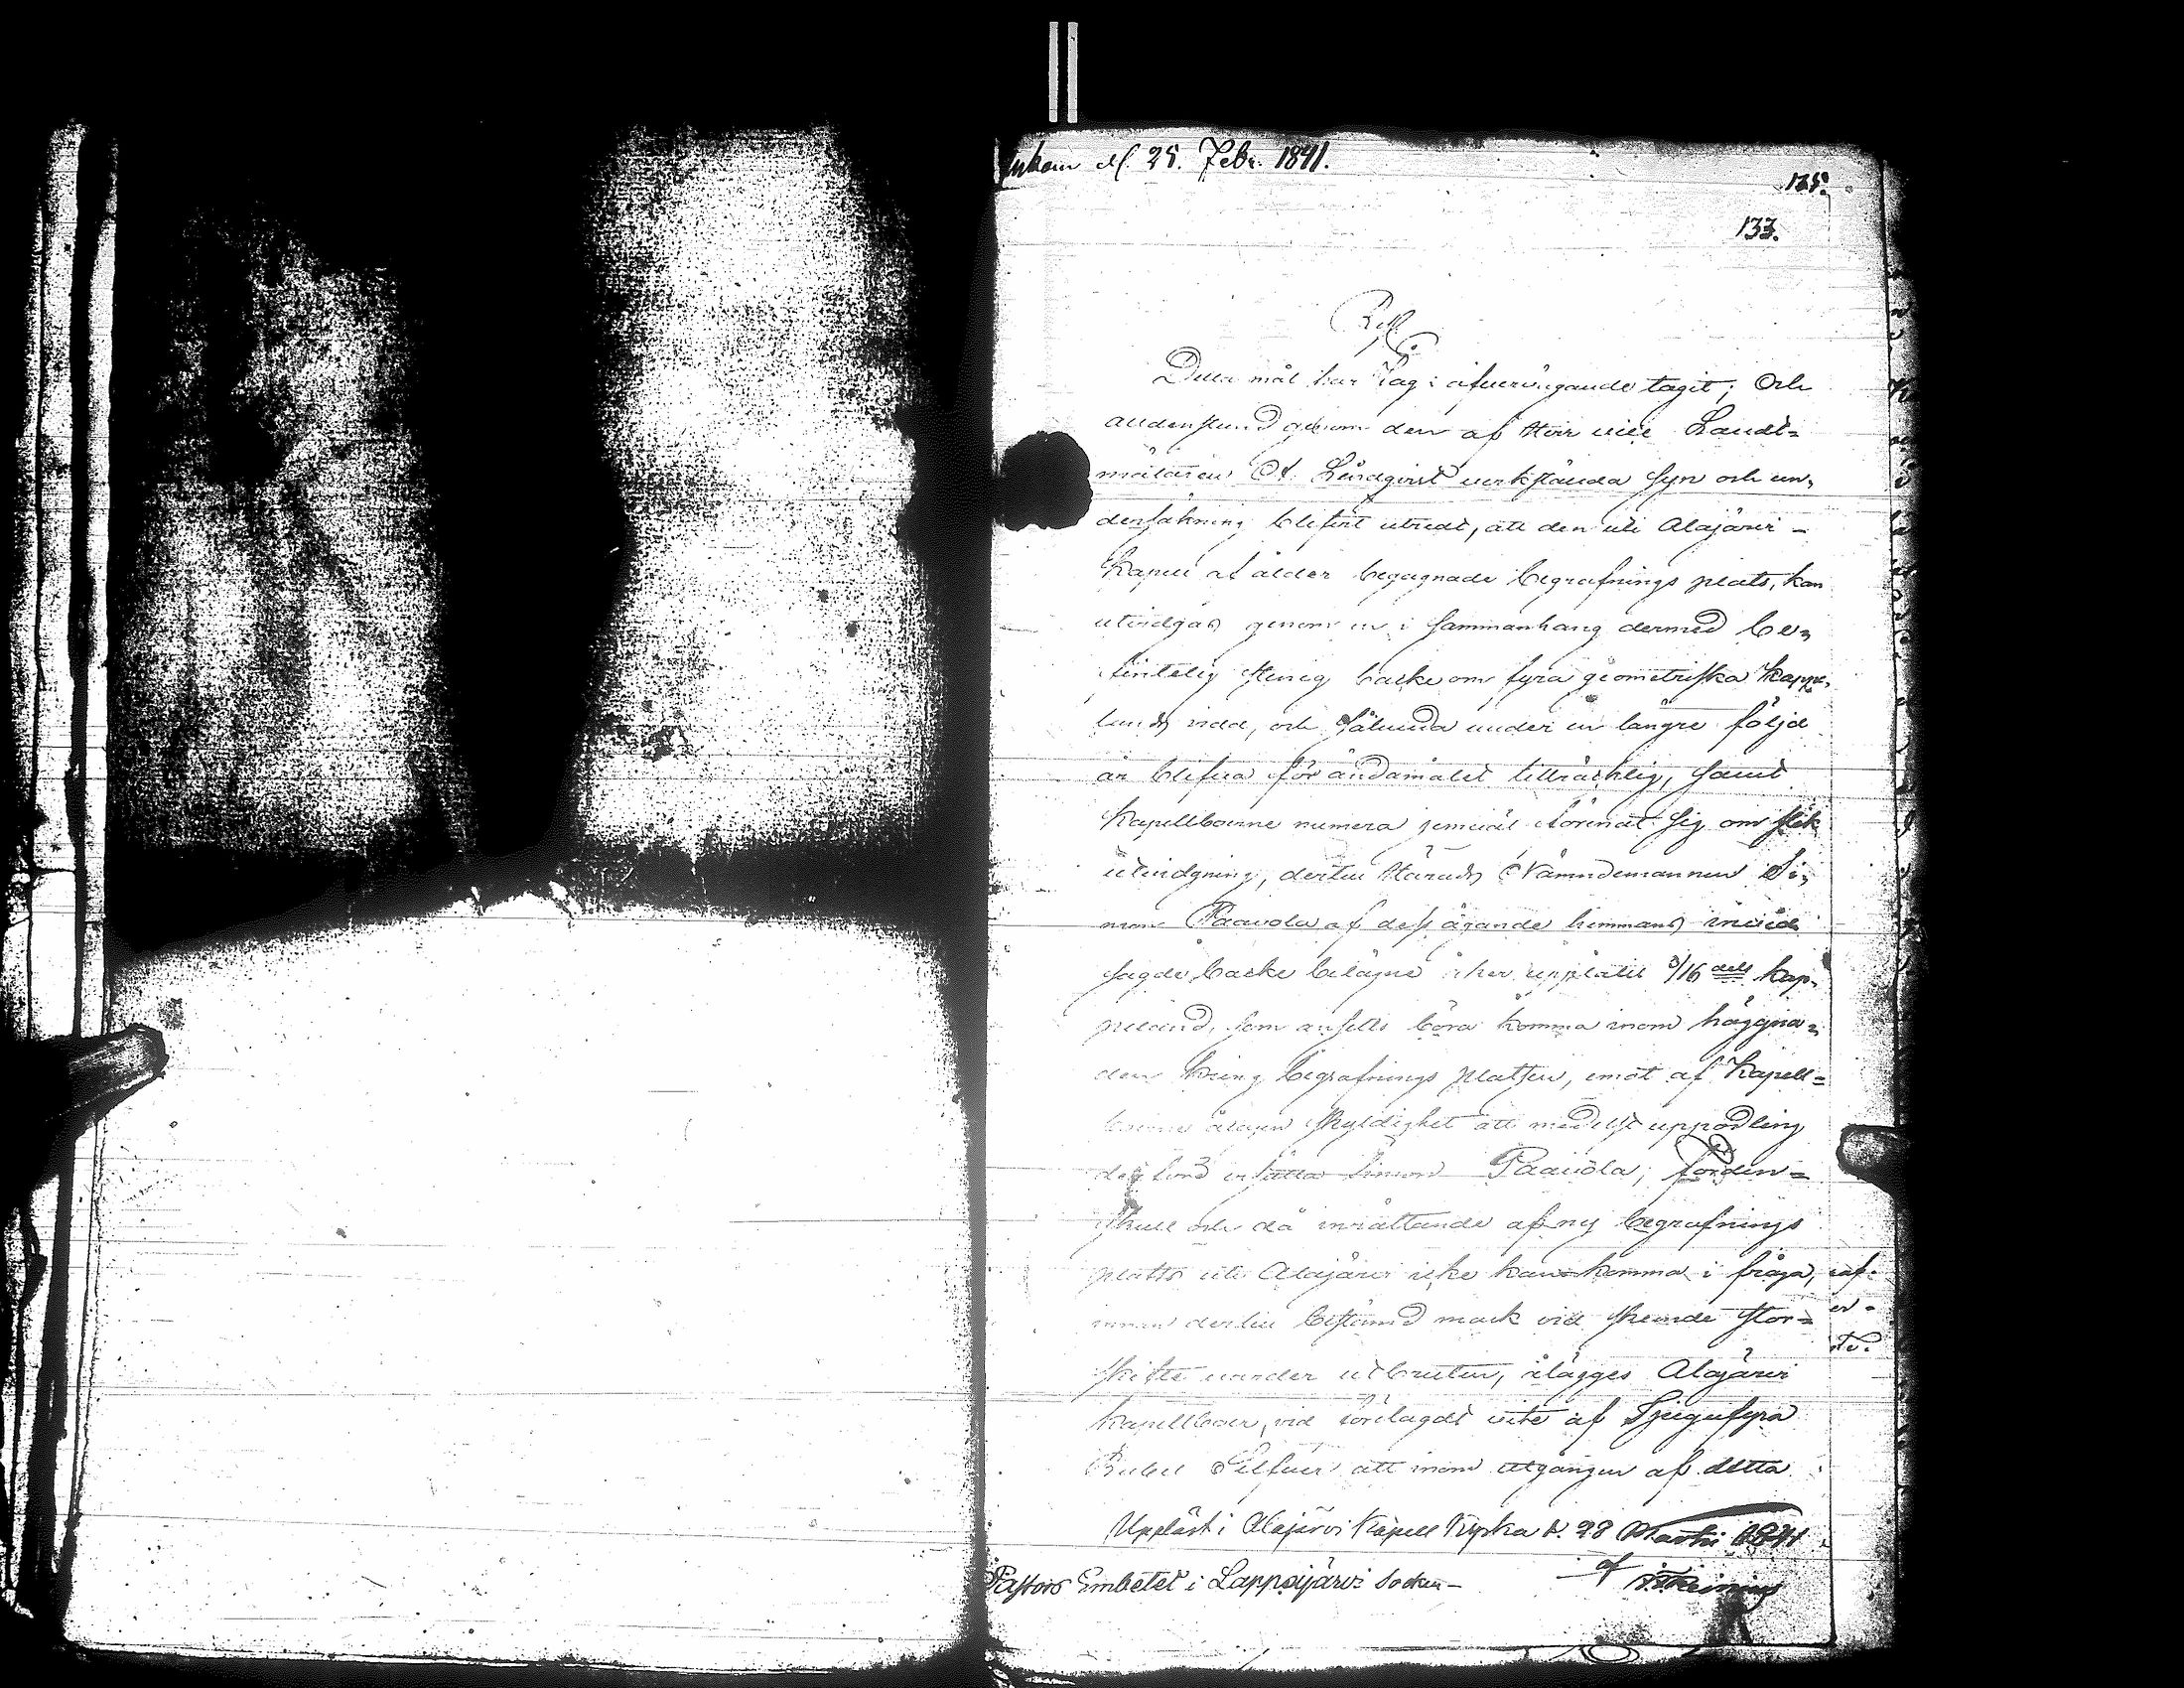 Inkom d. 25. Febr. 1841.
125.
133.
Res.
Detta mål har Jag i öfvervägande tagit; Och
alldenstund genom den af Herr vice Landt=
mätaren A. Lindqvist verkstälda syn och un,
dersökning blifvit utredt, att den uti Alajärvi -
Kapell af ålder begagnade begrafnings plats, kan
utvidgas genom en i sammanhang dermed be,
fintelig stenig backe om fyra geometriska Kapp,
lands vidd, och sålunda under en längre följd
år blifva för ändamålet tillräcklig, samt
Kapellboerne numera jemväl förenat sig om slik
utvidgning, dertill Härads Nämndemannen Si,
mon Paavola af dess ägande hemmans invid
sagde backe belägne åker upplåtit 3/16 dels kap,
peland, som ansetts böra komma inom hägna,
den kring begrafnings platsen, emot af Kapell=
boerne åtagen skyldighet att medelst uppodling
deraf ersätta Simon Paavola; fördén=
skull och då inrättande af ny begrafnings
platts uti Alajärvi icke kan komma i fråga,
innan dertill bestämd mark vid skeende stor=
skifte varder utbruten, ålägges Alajärvi
Kapellboer, vid förelagdt vite af Tjugufyra
Rubel Silfver att inom utgången af detta
Uppläst i Alajärvi Kapell Kyrka d. 28 Martii 1841
af
Pastors Embetet i Lappajärvi Socken -